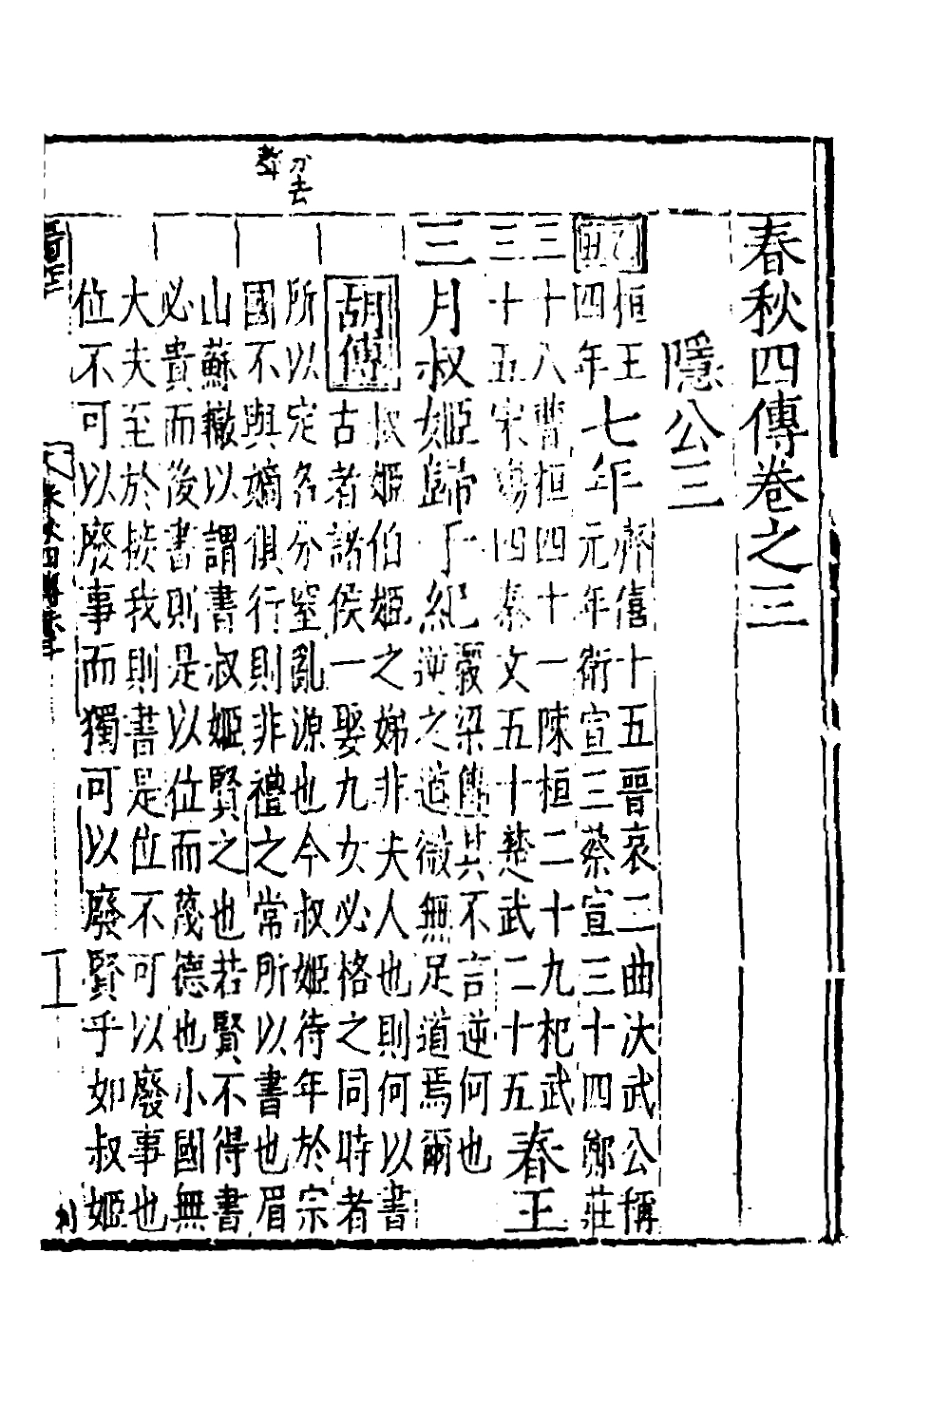 春秋四傳卷之三
隱公三
乙丑桓王四年七年齊僖十五晉哀二曲沃武公稱
元年衛宣三蔡宣三十四鄭莊
三十八曹桓四十一陳桓二十九杞武
三十五宋殤四秦文五十楚武二十五春王
三月叔姬歸于紀穀梁傳其不言逆何也
逆之道微無足道焉爾
胡傳叔姬伯姬之娣非夫人也則何以書
古者諸侯一娶九女必格之同時者
分去
聲
所以定名分窒亂源也今叔姬待年於宗
國不與嫡俱行則非禮之常所以書也眉
山蘇轍以謂書叔姬賢之也若賢不得書
必貴而後書則是以位而蔑德也小國無
大夫至於接我則書是位不可以廢事也
位不可以廢事而獨可以廢賢乎如叔姬